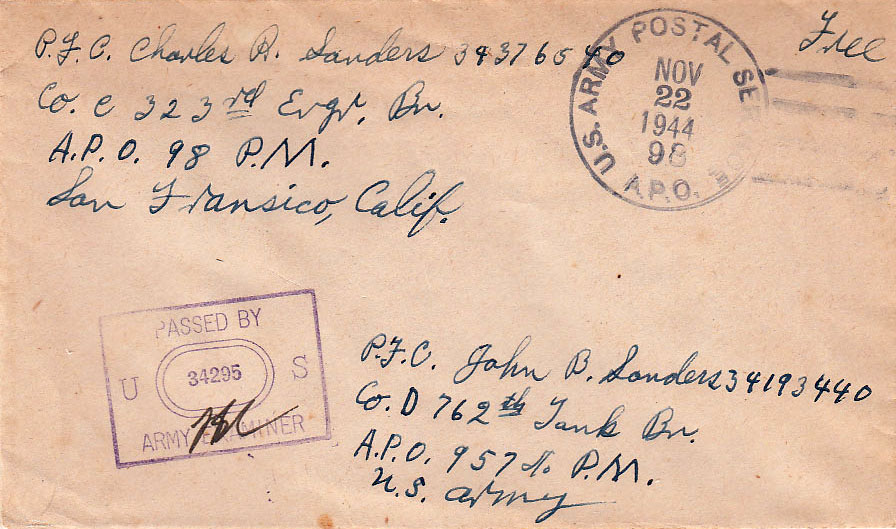 P.F.C. Charles R. Sanders 34376540
Co. C 323rd Engr. Bn.
A.P.O. 98 P.M.
San Fransico, Calif.
Free
U.S. ARMY POSTAL SERVICE
NOV
22
1944
98
A.P.O.
PASSED BY
U 34295 S
ARMY EXAMINER
P.F.C. John B. Sanders 34193440
Co. D 762th Tank Bn.
A.P.O. 957 P.M.
U.S. Army